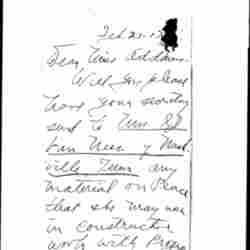 Feb 20-
Dear Miss Addams
Will you please
have your secretary
send to Mrs
Van Ness of Nash
ville Tenn any
material on Peace
that she may use
in constructive
work with